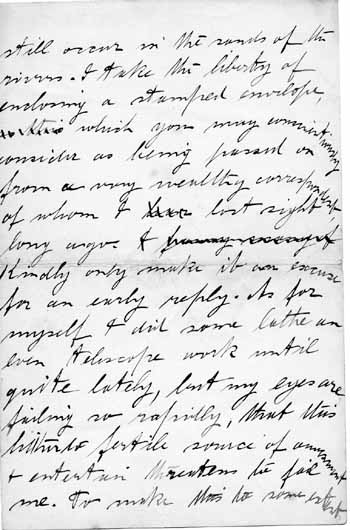 still occur in the sands of the
rivers. I take the liberty of
enclosing a stamped envelope,
which you may conscientiously
consider as being passed on
from a very wealthy correspondent
of whom I lost sight
long ago. I
Kindly only make it an excuse
for an early reply. As for
myself I did some lathe an
even telescope work until
quite lately, but my eyes are
failing so rapidly, that this
hitherto fertile source of amusement
+ entertain threatens to fail
me. To make this to some extent